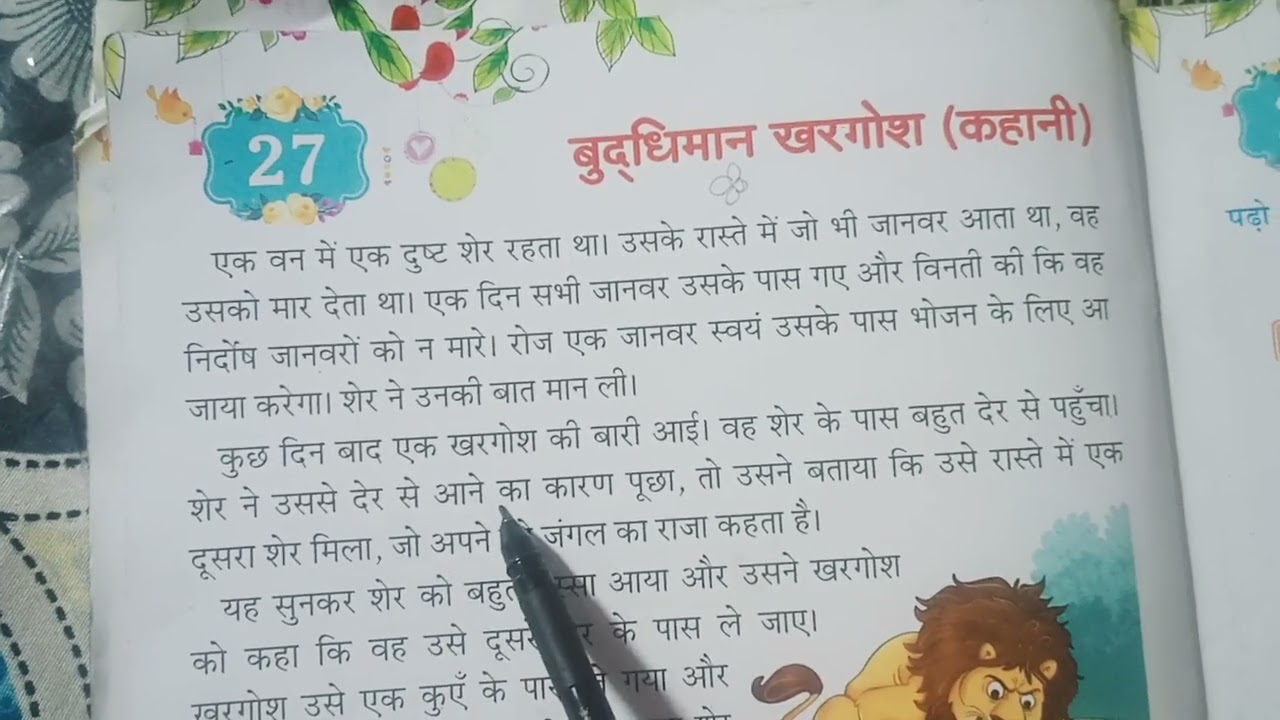 27
बुद्धिमान खरगोश (कहानी)
एक वन में एक दुष्ट शेर रहता था। उसके रास्ते में जो भी जानवर आता था, वह
उसको मार देता था। एक दिन सभी जानवर उसके पास गए और विनती की कि वह
निर्दोष जानवरों को न मारे। रोज एक जानवर स्वयं उसके पास भोजन के लिए आ
जाया करेगा। शेर ने उनकी बात मान ली।
कुछ दिन बाद एक खरगोश की बारी आई। वह शेर के पास बहुत देर से पहुँचा।
शेर ने उससे देर से आने का कारण पूछा, तो उसने बताया कि उसे रास्ते में एक
दूसरा शेर मिला, जो अपने जंगल का राजा कहता है।
यह सुनकर शेर को बहुत आया और उसने खरगोश
को कहा कि वह उसे के पास ले जाए।
खरगोश उसे एक कुएँ के गया और
पढ़ो